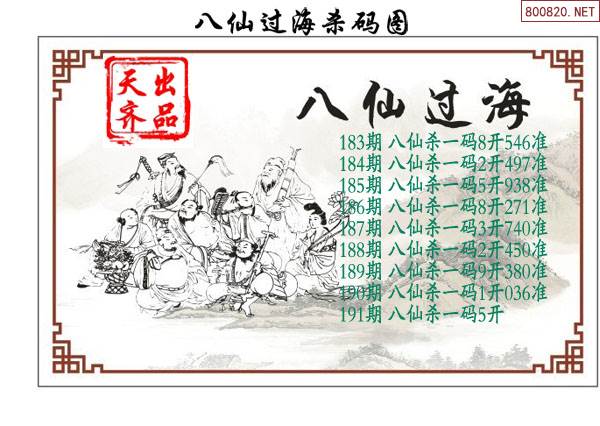 800820.NET
八仙过海杀码图
天齐出品
八仙过海
183期 八仙杀一码8开546准
184期 八仙杀一码2开497准
185期 八仙杀一码5开938准
186期 八仙杀一码8开271准
187期 八仙杀一码3开740准
188期 八仙杀一码2开450准
189期 八仙杀一码9开380准
190期 八仙杀一码1开036准
191期 八仙杀一码5开